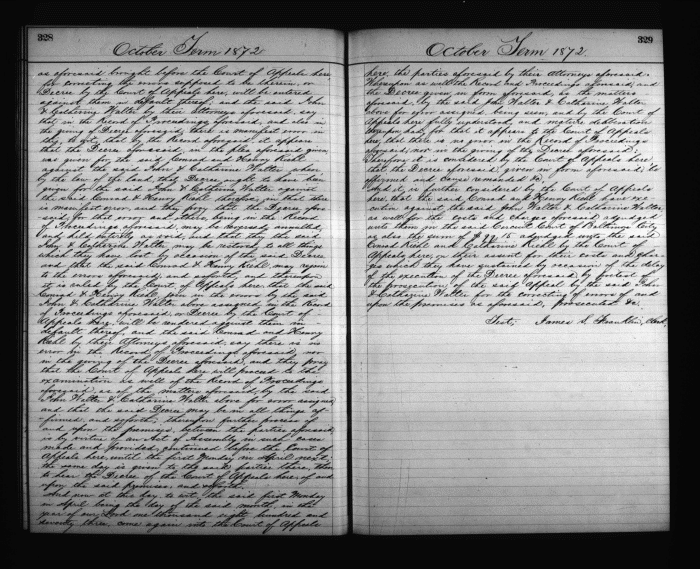 328
October Term 1872
as aforesaid brought before the Court of Appeals here
for correcting the errors supposed to be therein, or
Decree by the Court of Appeals here, will be entered
against them in default thereof; and the said John
& Catherine Walter by their attorneys aforesaid, say
that in the Record & Proceedings aforesaid, and also in
the giving of Decree aforesaid, there is manifest error in
this, to wit, that by the Record aforesaid it appears
that the Decree aforesaid, in the plea aforesaid given
was given for the said Conrad and Henry Riehl
against the said John & Catherine Walter when
by the law of the land, the Decree ought to have been
given for the said John & Catherine Walter against
the said Conrad & Henry Riehl therefore, in that there
is manifest error, and they pray that the Decree afore-
said for that error and others being in the Record
& Proceedings aforesaid, may be reversed, annulled
and held entirely as void, and that they, the said
John & Catherine Walter may be restored to all things
which they have lost by occasion of the said Decree
and that the said Conrad & Henry Riehl may rejoin
to the errors aforesaid, and so forth, and thereupon
it is ruled by the Court of Appeals here, that the said
Conrad & Henry Riehl join in the errors by the said
John & Catherine Walter above assigned in the Record
& Proceedings aforesaid, or Decree by the Court of
Appeals here, will be rendered against them in
default thereof, and the said Conrad and Henry
Riehl by their Attorneys aforesaid, say there is no
error in the Record & Proceedings aforesaid, nor
in the giving of the Decree aforesaid, and they pray
that the Court of Appeals here will proceed to the
examination as well of the Record & Proceedings
aforesaid, as of the matters aforesaid by the said
John Walter & Catherine Walter above for error assigned
and that the said Decree may be in all things af-
-firmed and so forth; thereupon further process of
and upon the premises, between the parties aforesaid
is by virtue of an Act of Assembly in such cases
made and provided, continued before the Court of
Appeals here, until the first Monday in April next,
the same day is given to the said parties there, then
to hear the Decree of the Court of Appeals here, of and
upon the premises, and so forth.
And now at this day, to wit, the said first Monday
in April being the day of the said month, in the
year of our Lord one thousand eight hundred and
seventy three, come again into the Court of Appeals
329
October Term 1872.
here, the parties aforesaid by their Attorneys aforesaid.
Whereupon as well the Record and Proceedings aforesaid, and
the Decree given in form aforesaid, as the matters
aforesaid, by the said John Walter & Catharine Walter
above for error assigned, being seen, and by the Court of
Appeals here fully understood, and mature deliberation
thereupon had, for that it appears to the Court of Appeals
here, that there is no error in the Record & Proceedings
aforesaid, nor in the giving of the Decree aforesaid;
Therefore it is considered by the Court of Appeals here
that the Decree aforesaid, given in form aforesaid be
affirmed and cause remanded &c.
And it is further considered by the Court of Appeals
here, that the said Conrad and Henry Riehl have re
the said John Walter & Catharine Walter,
as well for the costs and charges aforesaid adjudged
unto them in the said Circuit Court of Baltimore City
as also the sum of $ 99.15 adjudged unto the said
Conrad Riehl and Catharine Riehl by the Court of
Appeals here, on their assent for their costs and char-
ges which they have sustained by occasion of the delay
of the execution of the Decree aforesaid, by pretext of
the prosecution of the said Appeal by the said John
& Catharine Walter for the correcting of errors of and
upon the premises as aforesaid, prosecuted &c.
Test, James S. Franklin, Clerk,